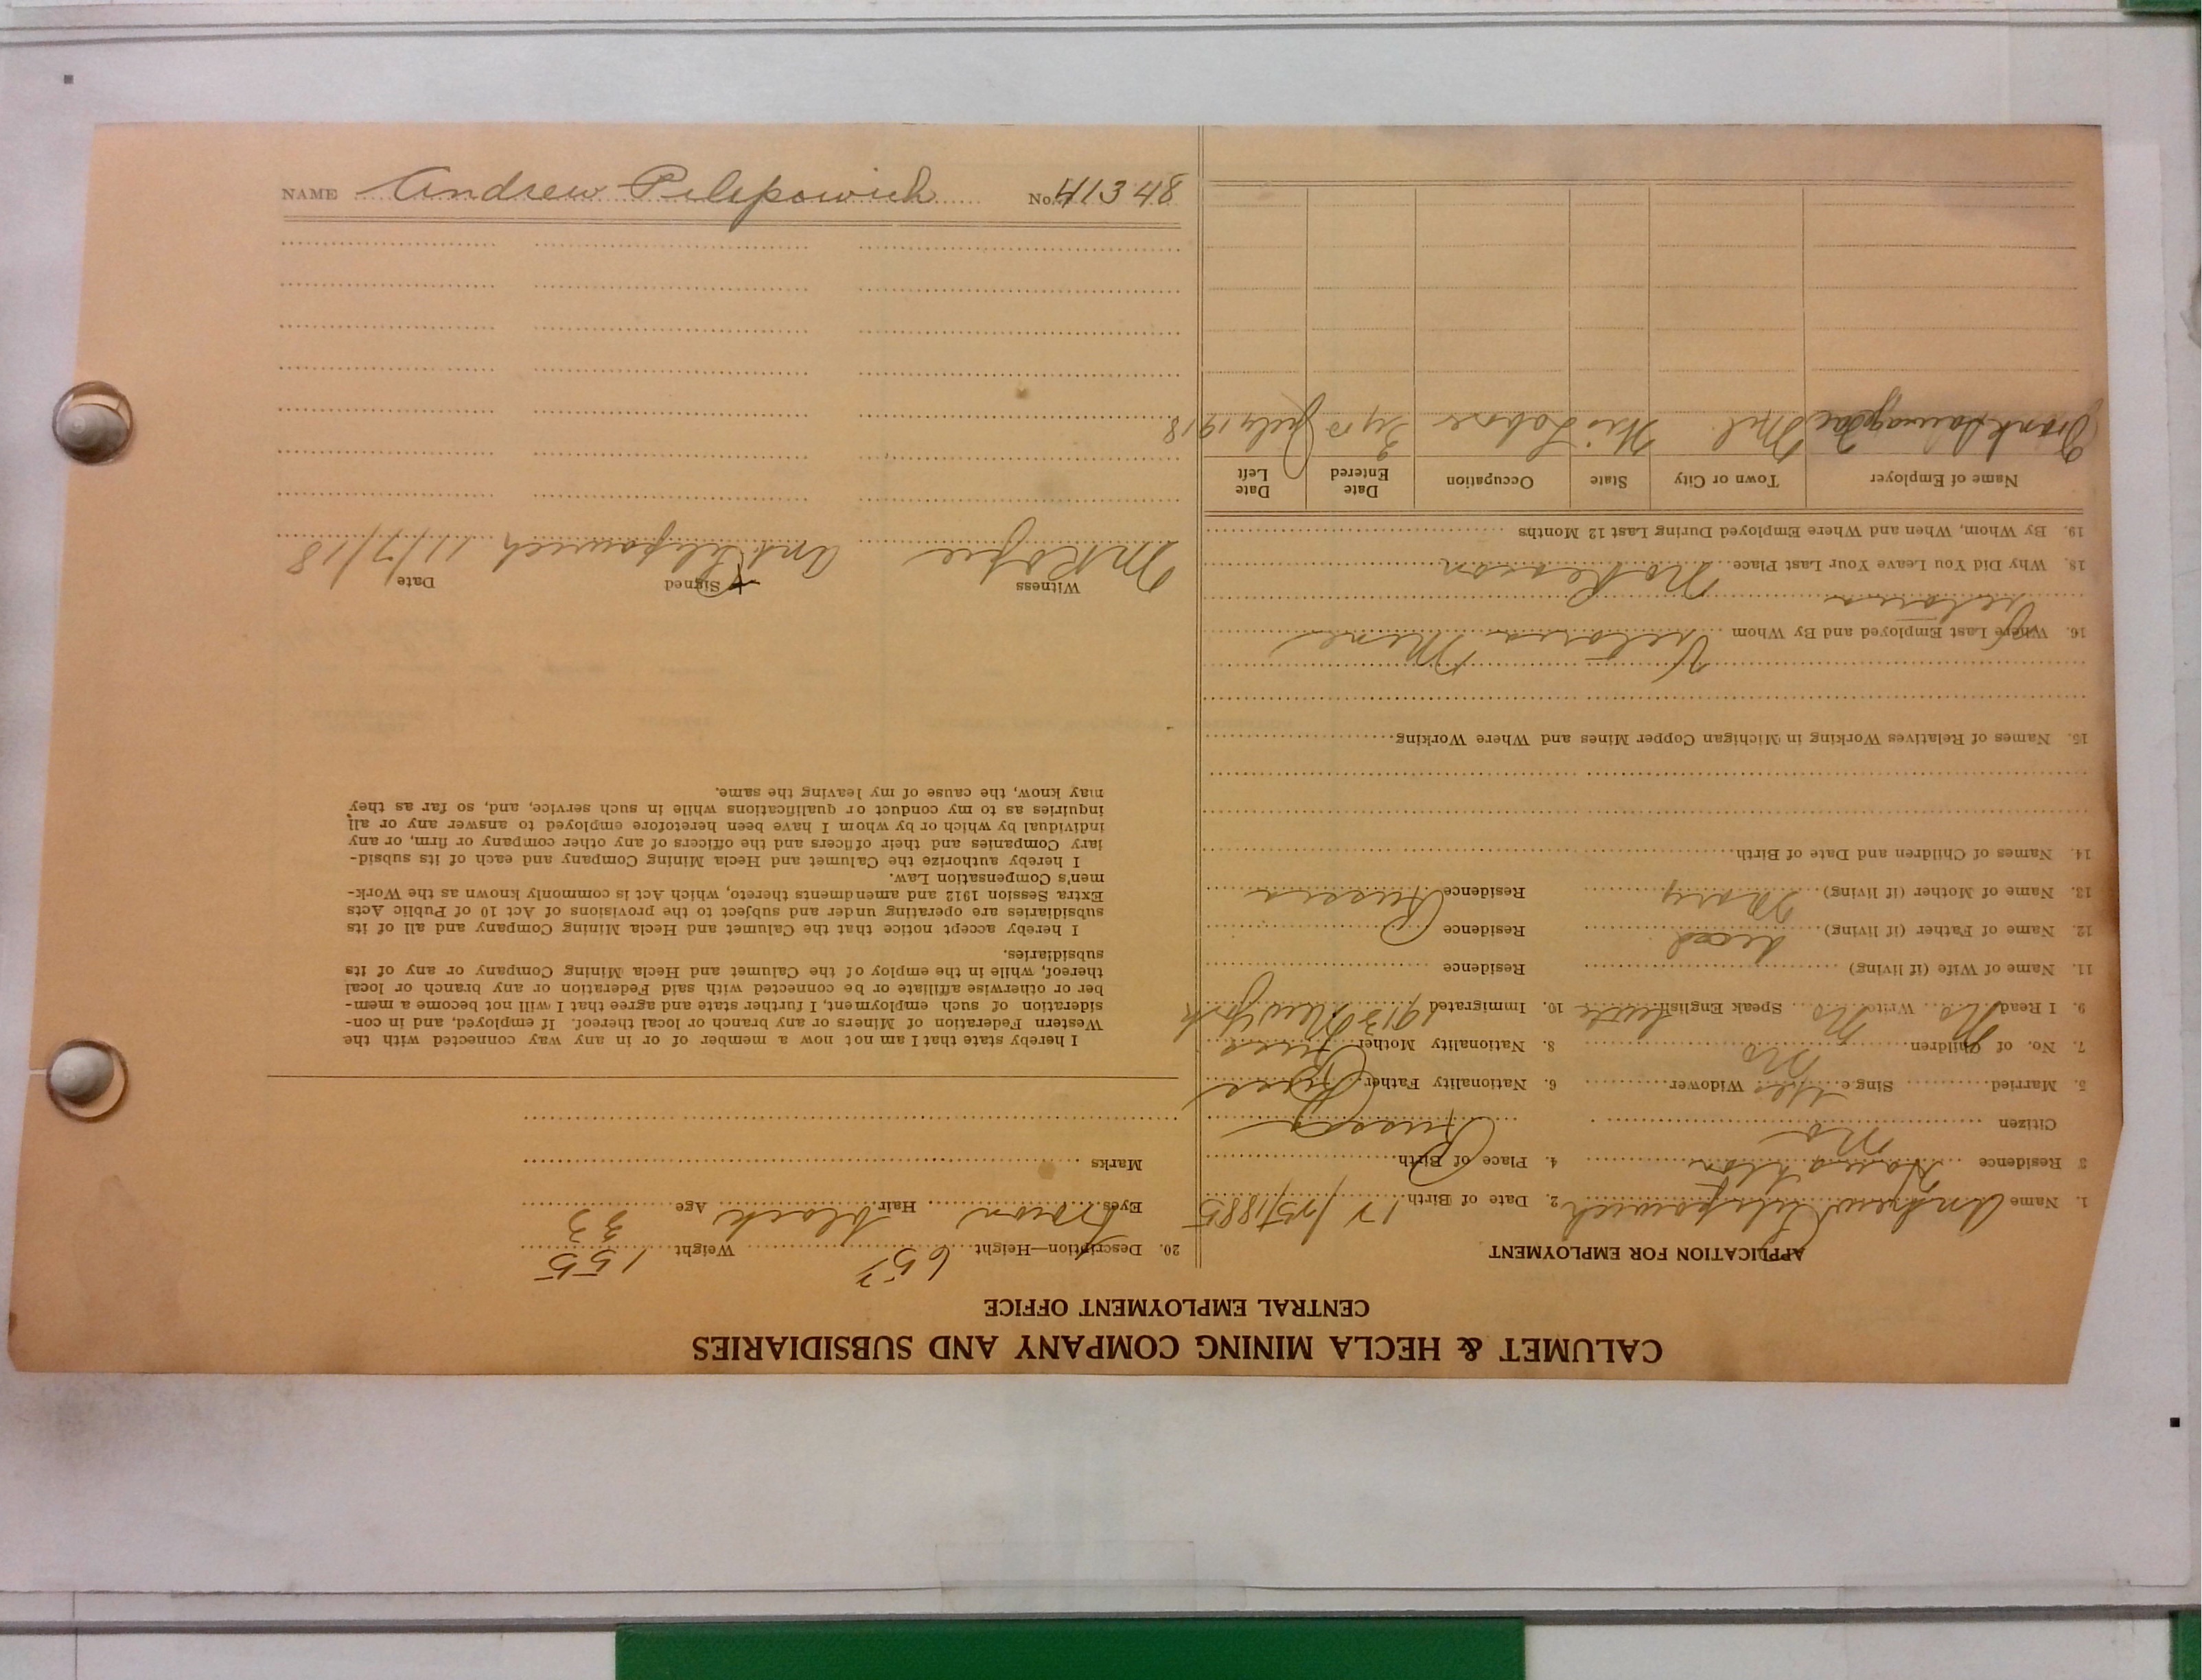 NAME Andrew Pilipowich No. 41348
CALUMET & HECLA MINING COMPANY AND SUBSIDIARIES
CENTRAL EMPLOYMENT OFFICE
APPLICATION FOR EMPLOYMENT
1. Name Andrew Pilipowich 2. Date of Birth 12/25/1885
3 Residence Houghton 4. Place of Birth Russia
Citizen No
5. Married Single Yes Widower 6. Nationality Father Russ
7. No. of Children No 8. Nationality Mother Russ
9. I Read No Write No Speak English Little 10. Immigrated 1913 New York
11. Name of Wife (if living) Residence
12. Name of Father (if living) dead Residence
13. Name of Mother (if living) Mary Residence Russia
14. Names of Children and Date of Birth
15. Names of Relatives Working in Michigan Copper Mines and Where Working
16. Where Last Employed and By Whom Victoria Mine
Victoria
18. Why Did You Leave Your Last Place No Reason
19. By Whom, When and Where Employed During Last 12 Months
Name of Employer Town or City State Occupation Date Entered Date Left
Frank Mil Wis Labor July 1918
20. Description—Height Weight 155
Eyes Brown Hair black Age 33
Marks
I hereby state that I am not now a member of or in any way connected with the
Western Federation of Miners or any branch or local thereof. If employed, and in con-
sideration of such employment, I further state and agree that I will not become a mem-
ber or otherwise affiliate or be connected with said Federation or any branch or local
thereof, while in the employ of the Calumet and Hecla Mining Company or any of its
subsidiaries.
I hereby accept notice that the Calumet and Hecla Mining Company and all of its
subsidiaries are operating under and subject to the provisions of Act 10 of Public Acts
Extra Session 1912 and amendments thereto, which Act is commonly known as the Work-
men's Compensation Law.
I hereby authorize the Calumet and Hecla Mining Company and each of its subsid-
iary Companies and their officers and the officers of any other company or firm, or any
individual by which or by whom I have been heretofore employed to answer any or all
inquiries as to my conduct or qualifications while in such service, and, so far as they
may know, the cause of my leaving the same.
Witness Signed Date
And Pilipowich 11/7/18